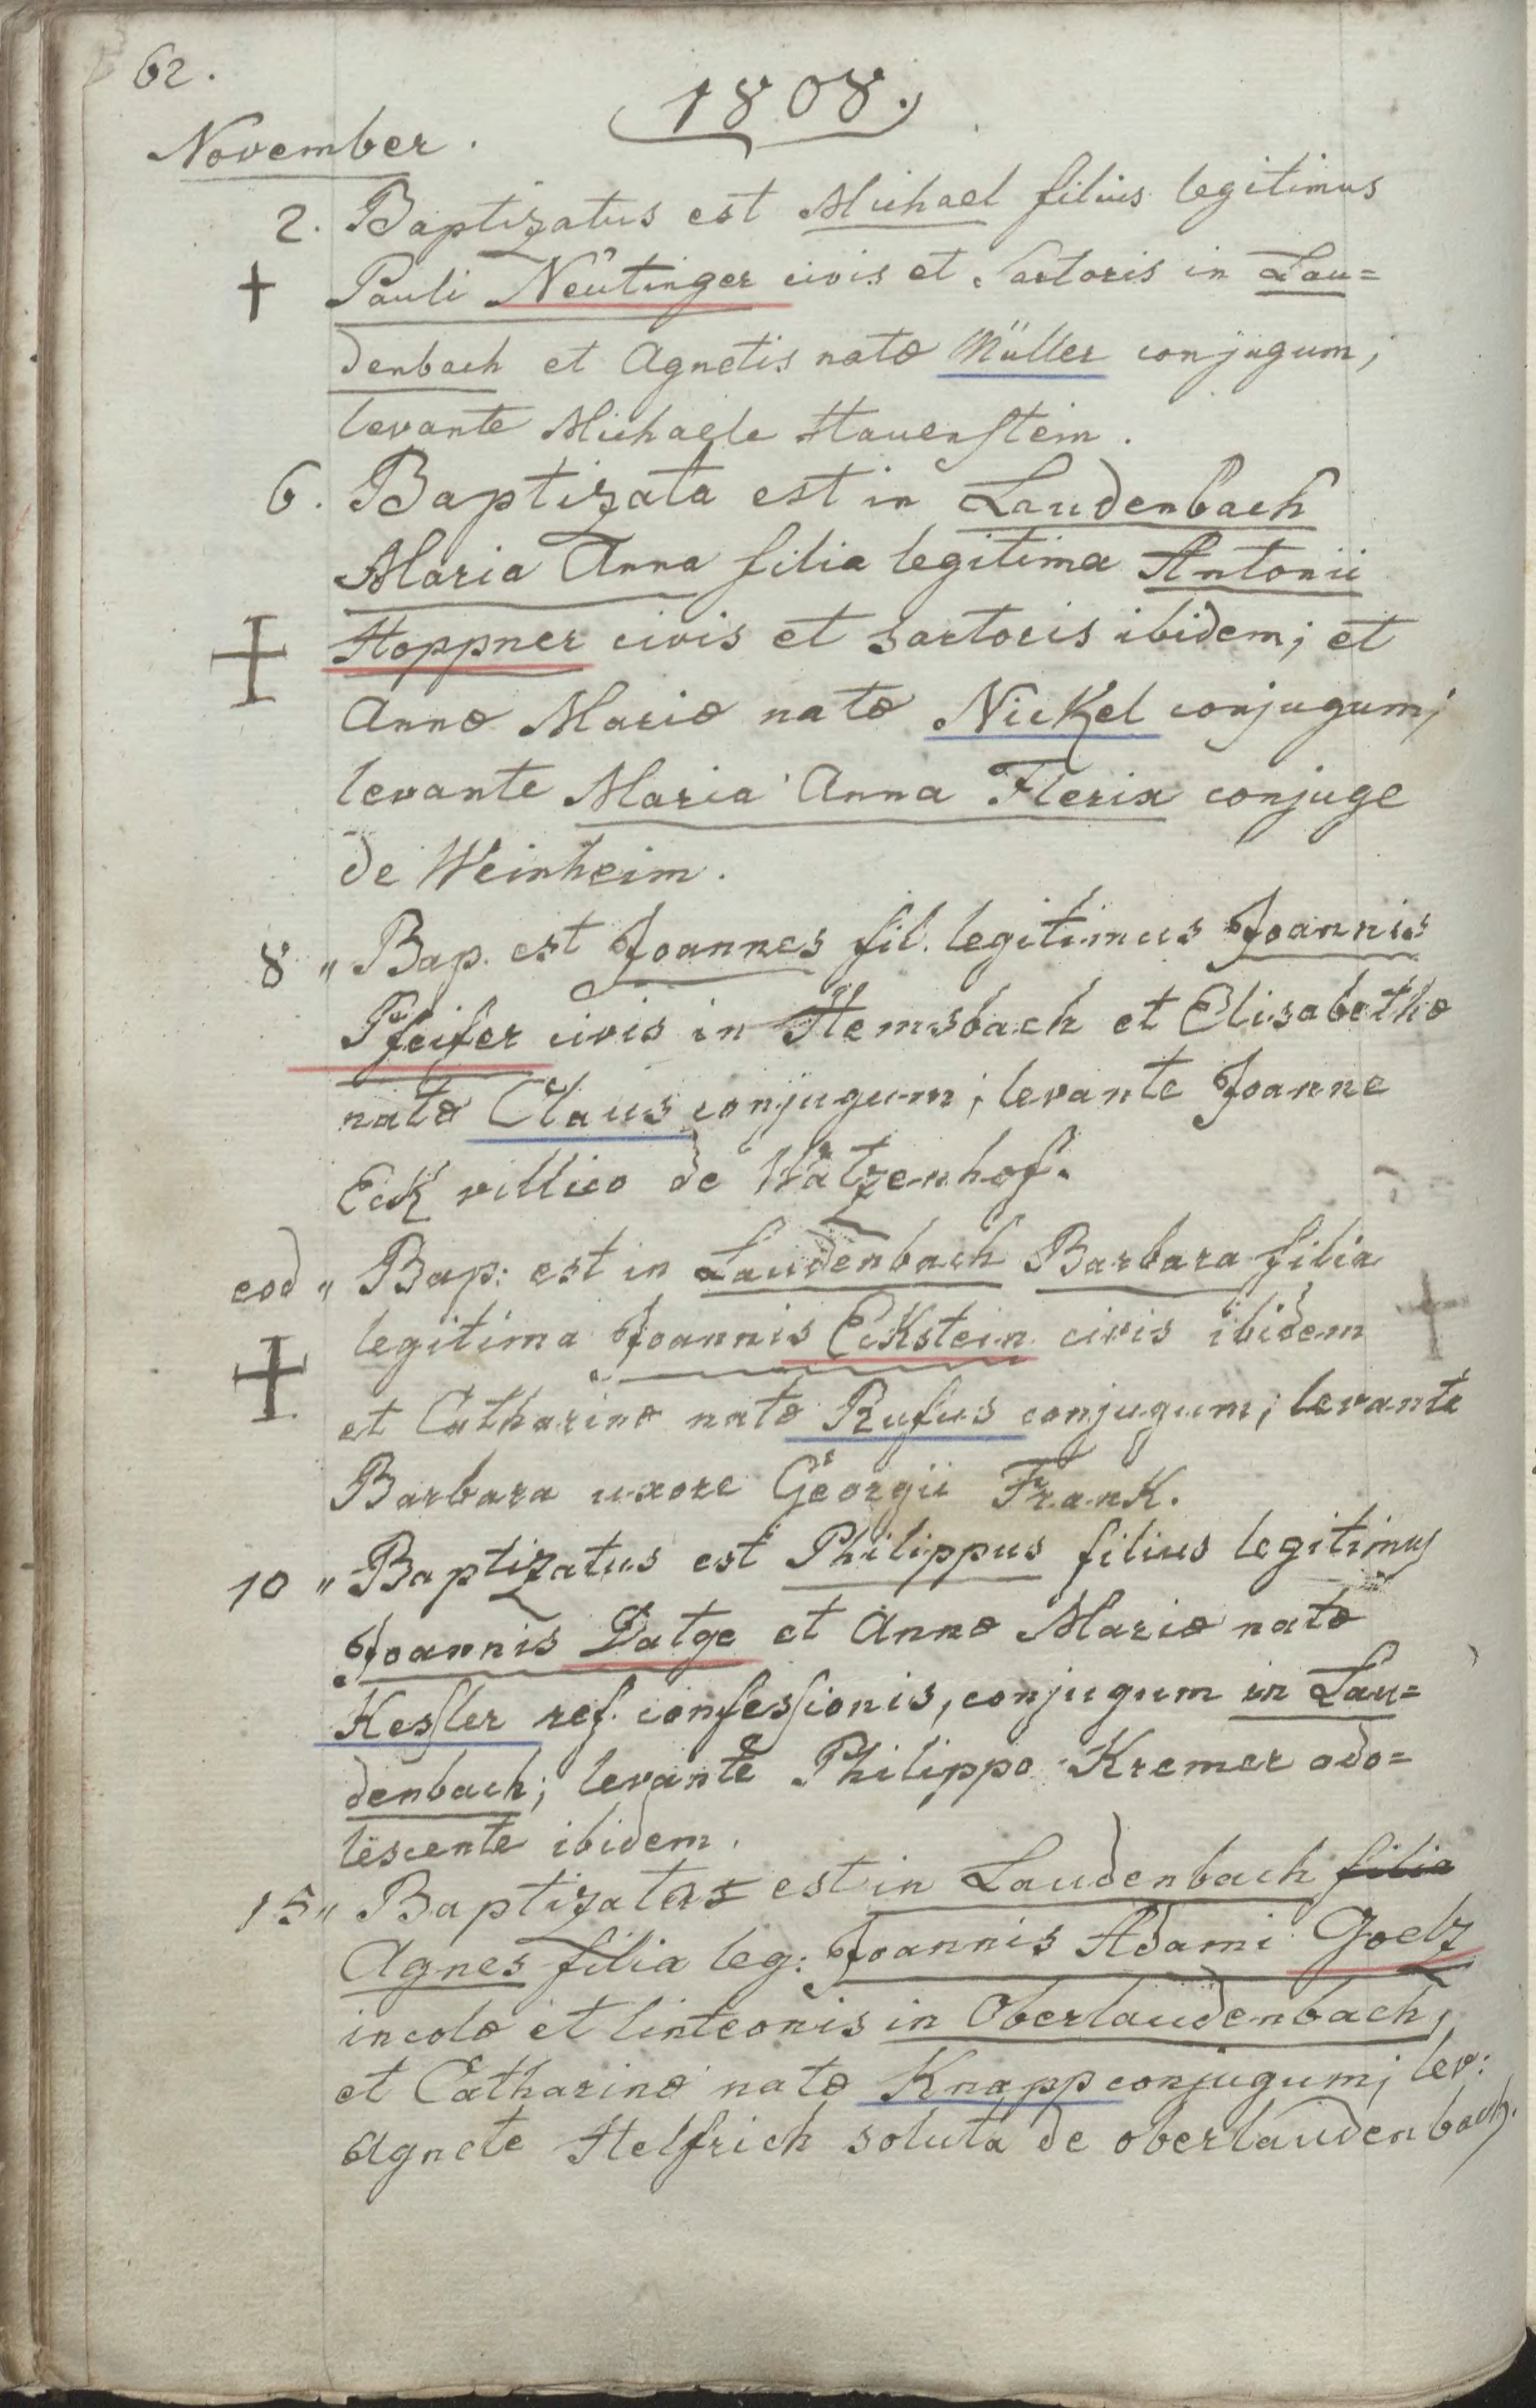 62.
1808.
November.
2. Baptizatus est Michael filius legitimus
Pauli Neutinger civis et Sartoris in Lau=
denbach et Agnetis natæ Müller conjugum;
levante Michaele Hauenstein.
6. Baptizata est in Laudenbach
Maria Anna filia legitima Antonii
Hoppner civis et sartoris ibidem; et
Annæ Mariæ natæ Nickel conjugum;
levante Maria Anna Flerix conjuge
de Weinheim.
8 „ Bap. est Joannes fil. legitimus Joannis
Pfeifer civis in Hemsbach et Elisabethæ
natæ Claus conjugum; levante Joanne
Eck villico de Watzenhof.
eod „ Bap: est in Laudenbach Barbara filia
legitima Joannis Eckstein civis ibidem
et Catharinæ natæ Rufus conjugum; levante
Barbara uxore Georgii Frank.
10 „ Baptizatus est Philippus filius legitimus
Joannis Datge et Annæ Mariæ natæ
Kessler ref. confessionis, conjugum in Lau=
denbach; levante Philippo Kremer ado=
lescente ibidem.
15 „ Baptizata est in Laudenbach filia
Agnes filia leg: Joannis Adami Goelz
incolæ et linteonis in Oberlaudenbach,
et Catharinæ natæ Knapp conjugum; lev:
Agnete Helfrich soluta de oberlaudenbach.